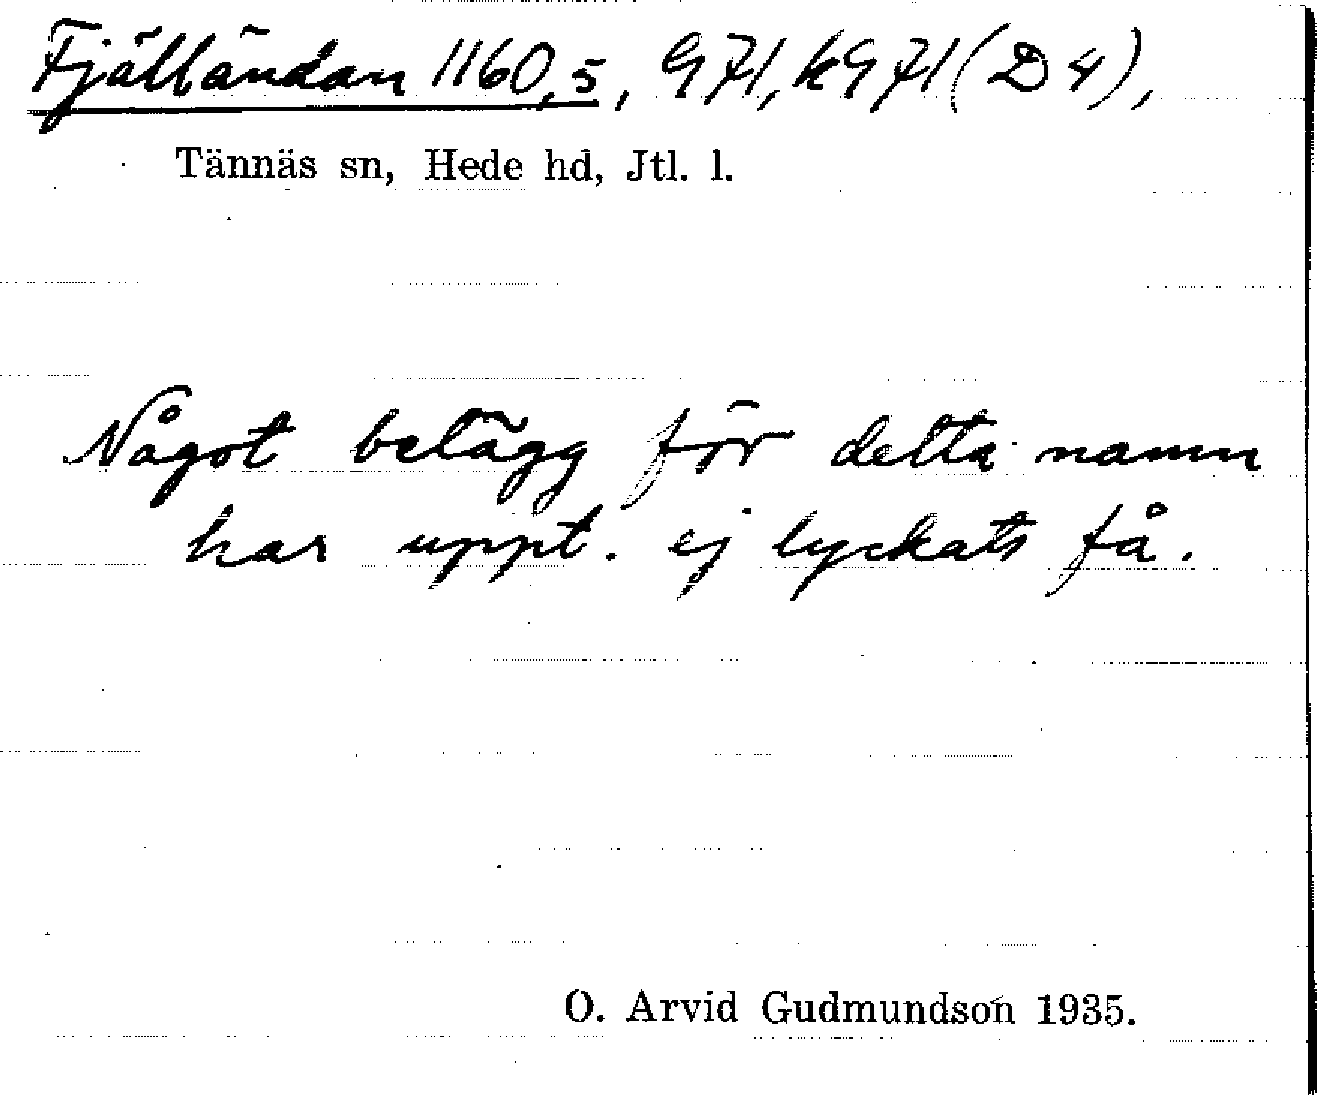 Fjälländan 1160,5, G71, kG71 (D4),
Tännäs sn, Hede hd, Jtl. l.
Något belägg för detta namn
har uppt. ej lyckats få.
O. Arvid Gudmundson 1935.